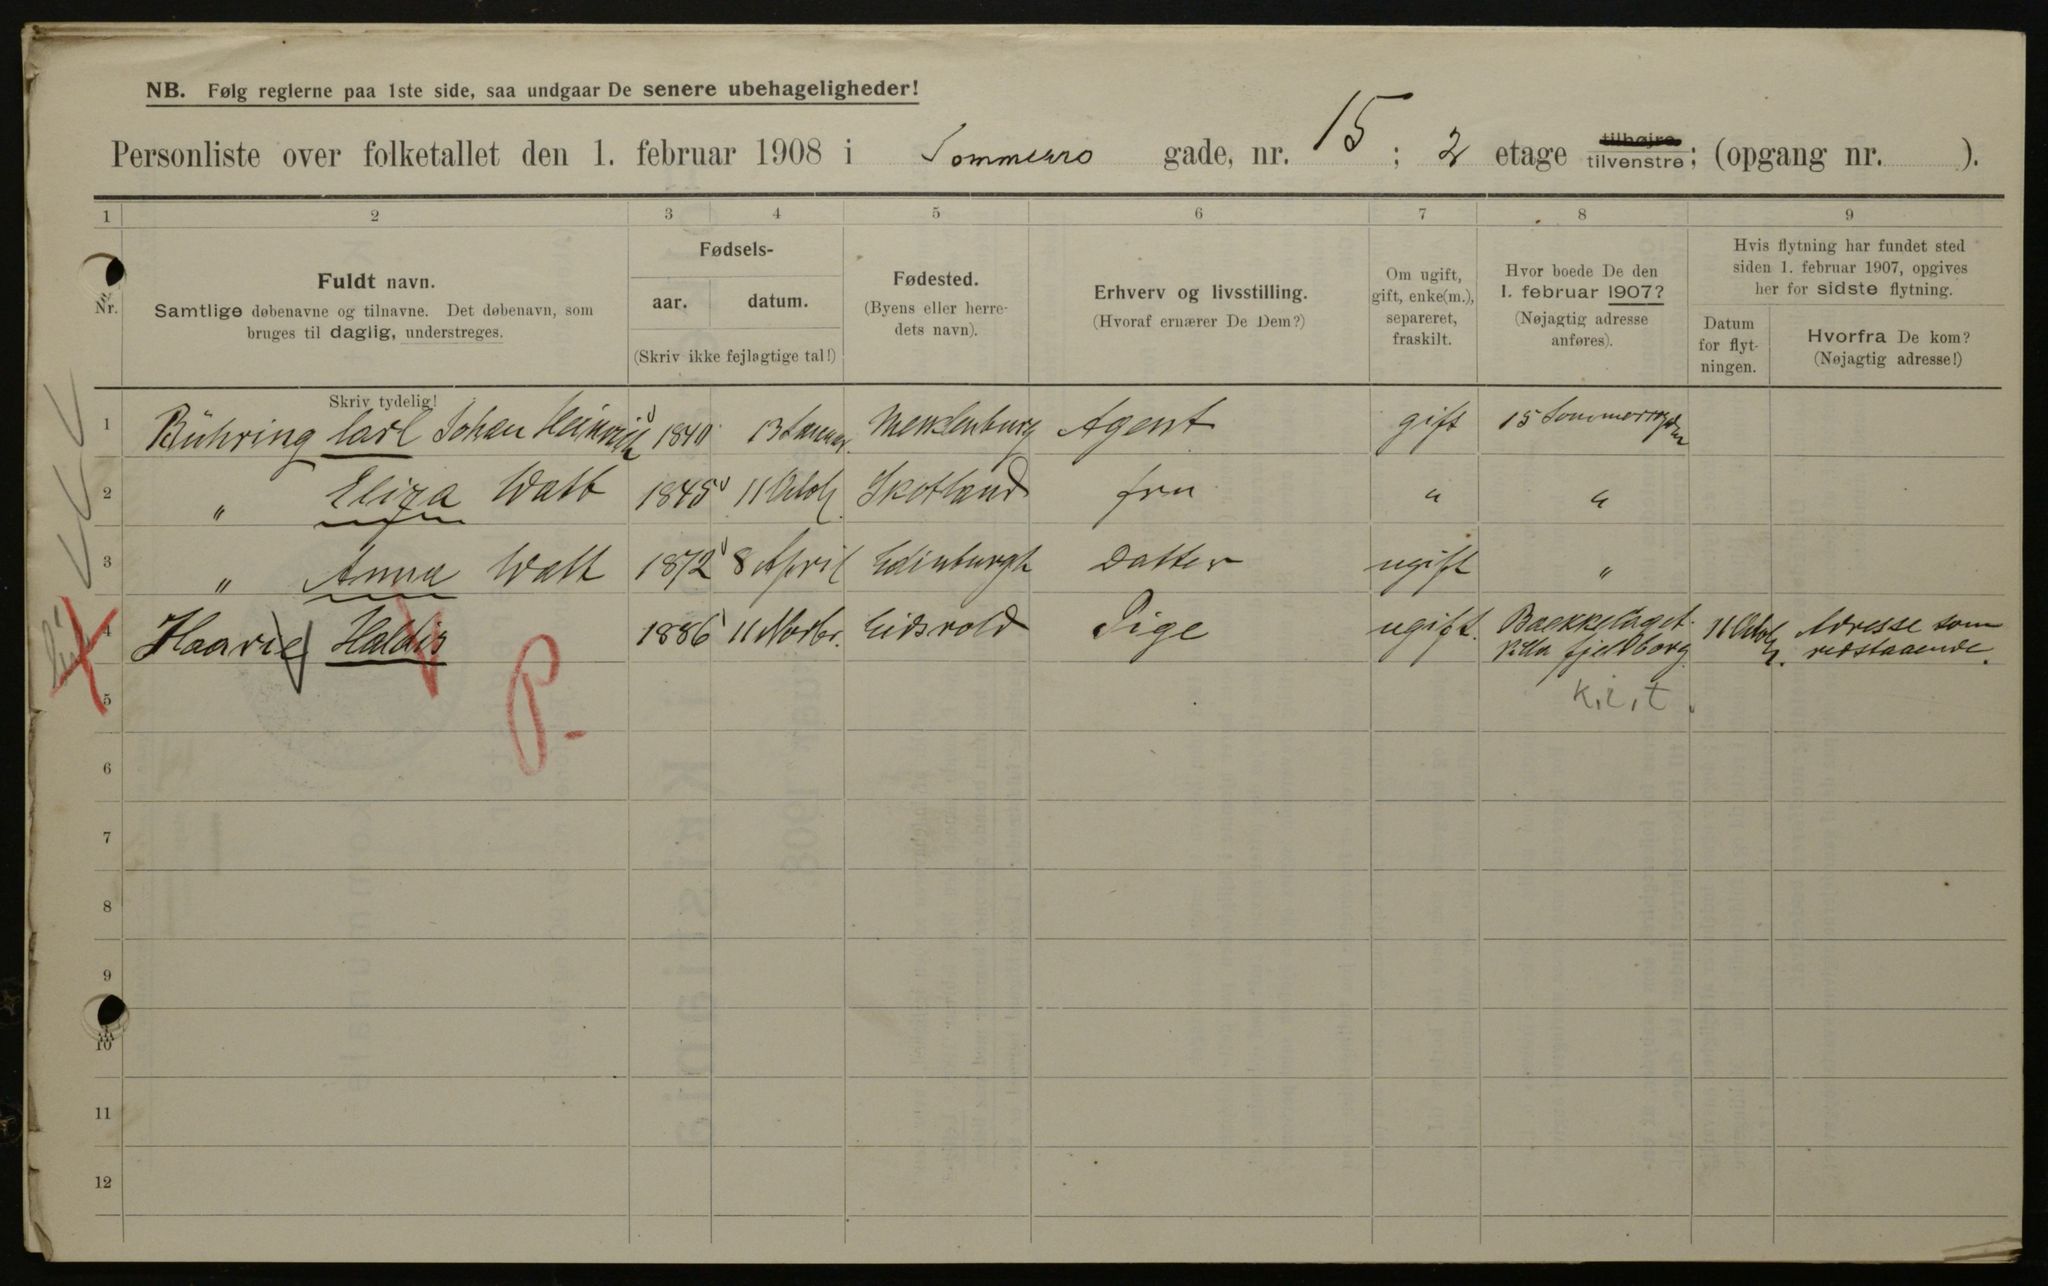 NB. Følg reglerne paa 1ste side, saa undgaar De senere ubehageligheder!
Personliste over folketallet den 1. februar 1908 i Sommerro gade, nr. 15; 2 etage tilhøjre tilvenstre; (opgang nr. ).
1 2 3 4 5 6 7 8 9
Nr.
Fuldt navn.
Samtlige døbenavne og tilnavne. Det døbenavn, som
bruges til daglig, understreges.
Skriv tydelig!
Fødsels-
aar. datum.
(Skriv ikke fejlagtige tal!)
Fødested.
(Byens eller herre-
dets navn).
Erhverv og livsstilling.
(Hvoraf ernærer De Dem?)
Om ugift,
gift, enke(m.),
separeret,
fraskilt.
Hvor boede De den
1. februar 1907?
(Nøjagtig adresse
anføres).
Hvis flytning har fundet sted
siden 1. februar 1907, opgives
her for sidste flytning.
Datum
for flyt-
ningen.
Hvorfra De kom?
(Nøjagtig adresse!)
1 Bühring Carl Johan Heinrich 1840 13 Januar. Agent gift 15
2 " Eliza Watt 1845 11 Octob. Skotland fru " "
3 " Anna Watt 1872 8 April Edinburgh Datter ugift "
4 Haavie Haldis 1886 11 Novbr. Eidsvold Pige ugift. Bækkelaget. 11 Octob. Adresse som
Villa Fjeldborg. vedstaaende.
P.
k.i.t.
5
6
7
8
9
10
11
12